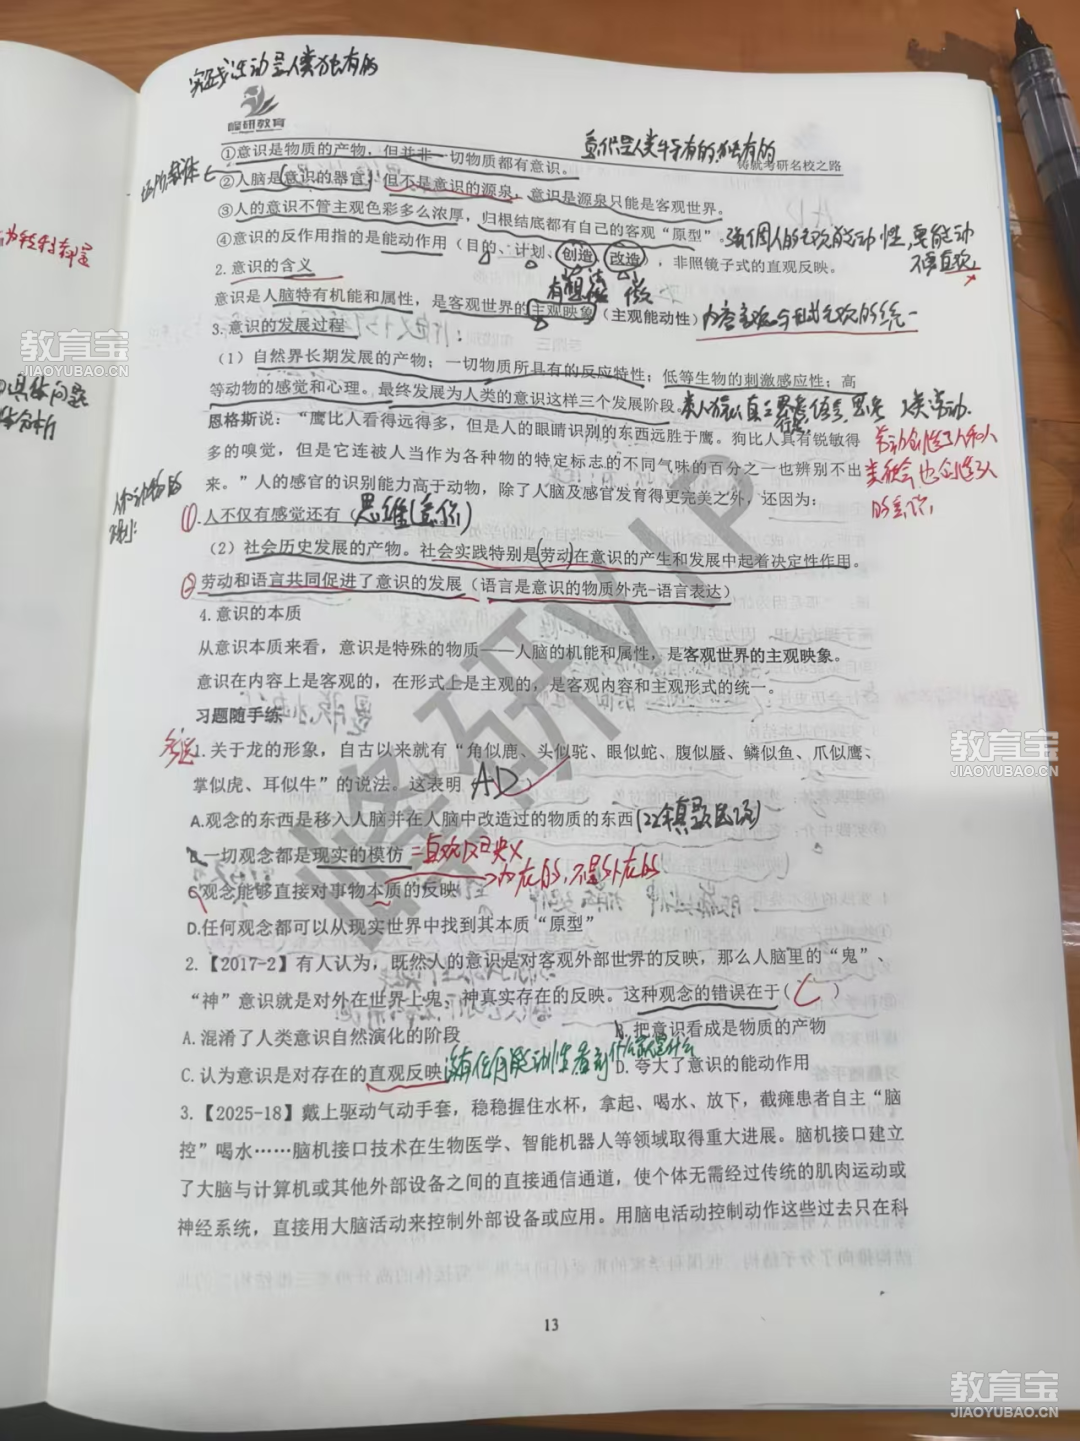 实践活动是人类独有的
峰研教育
意识是人类特有的独有的
铸就考研名校之路
①意识是物质的产物，但并非一切物质都有意识。
②人脑是意识的器官，但不是意识的源泉，意识是源泉只能是客观世界。
③人的意识不管主观色彩多么浓厚，归根结底都有自己的客观“原型”。
④意识的反作用指的是能动作用（目的、计划、创造、改造），非照镜子式的直观反映。
强调人的主观能动性，要能动
不要直观
2.意识的含义
意识是人脑特有机能和属性，是客观世界的主观映象（主观能动性）
3.意识的发展过程
（1）自然界长期发展的产物：一切物质所具有的反应特性；低等生物的刺激感应性；高
等动物的感觉和心理。最终发展为人类的意识这样三个发展阶段。
恩格斯说：“鹰比人看得远得多，但是人的眼睛识别的东西远胜于鹰。狗比人具有锐敏得
多的嗅觉，但是它连被人当作为各种物的特定标志的不同气味的百分之一也辨别不出
来。”人的感官的识别能力高于动物，除了人脑及感官发育得更完美之外，还因为：
劳动创造了人和人
类社会也创造了人
的意识
①.人不仅有感觉还有（思维(意识)）
（2）社会历史发展的产物。社会实践特别是(劳动)在意识的产生和发展中起着决定性作用。
②劳动和语言共同促进了意识的发展（语言是意识的物质外壳-语言表达）
4.意识的本质
从意识本质来看，意识是特殊的物质——人脑的机能和属性，是客观世界的主观映象。
意识在内容上是客观的，在形式上是主观的，是客观内容和主观形式的统一。
习题随手练
多选
1.关于龙的形象，自古以来就有“角似鹿、头似驼、眼似蛇、腹似蜃、鳞似鱼、爪似鹰、
掌似虎、耳似牛”的说法。这表明（AD）
A.观念的东西是移入人脑并在人脑中改造过的物质的东西
B.一切观念都是现实的模仿=直观反映
C.观念能够直接对事物本质的反映
内在的，不是外在的
D.任何观念都可以从现实世界中找到其本质“原型”
2.【2017-2】有人认为，既然人的意识是对客观外部世界的反映，那么人脑里的“鬼”、
“神”意识就是对外在世界上鬼、神真实存在的反映。这种观念的错误在于(C)
A.混淆了人类意识自然演化的阶段
B.把意识看成是物质的产物
C.认为意识是对存在的直观反映
没有任何能动性看到什么就是什么
D.夸大了意识的能动作用
3.【2025-18】戴上驱动气动手套，稳稳握住水杯，拿起、喝水、放下，截瘫患者自主“脑
控”喝水……脑机接口技术在生物医学、智能机器人等领域取得重大进展。脑机接口建立
了大脑与计算机或其他外部设备之间的直接通信通道，使个体无需经过传统的肌肉运动或
神经系统，直接用大脑活动来控制外部设备或应用。用脑电活动控制动作这些过去只在科
13
峰研VIP
教育宝
JIAOYUBAO.CN
教育宝
JIAOYUBAO.CN
教育宝
JIAOYUBAO.CN